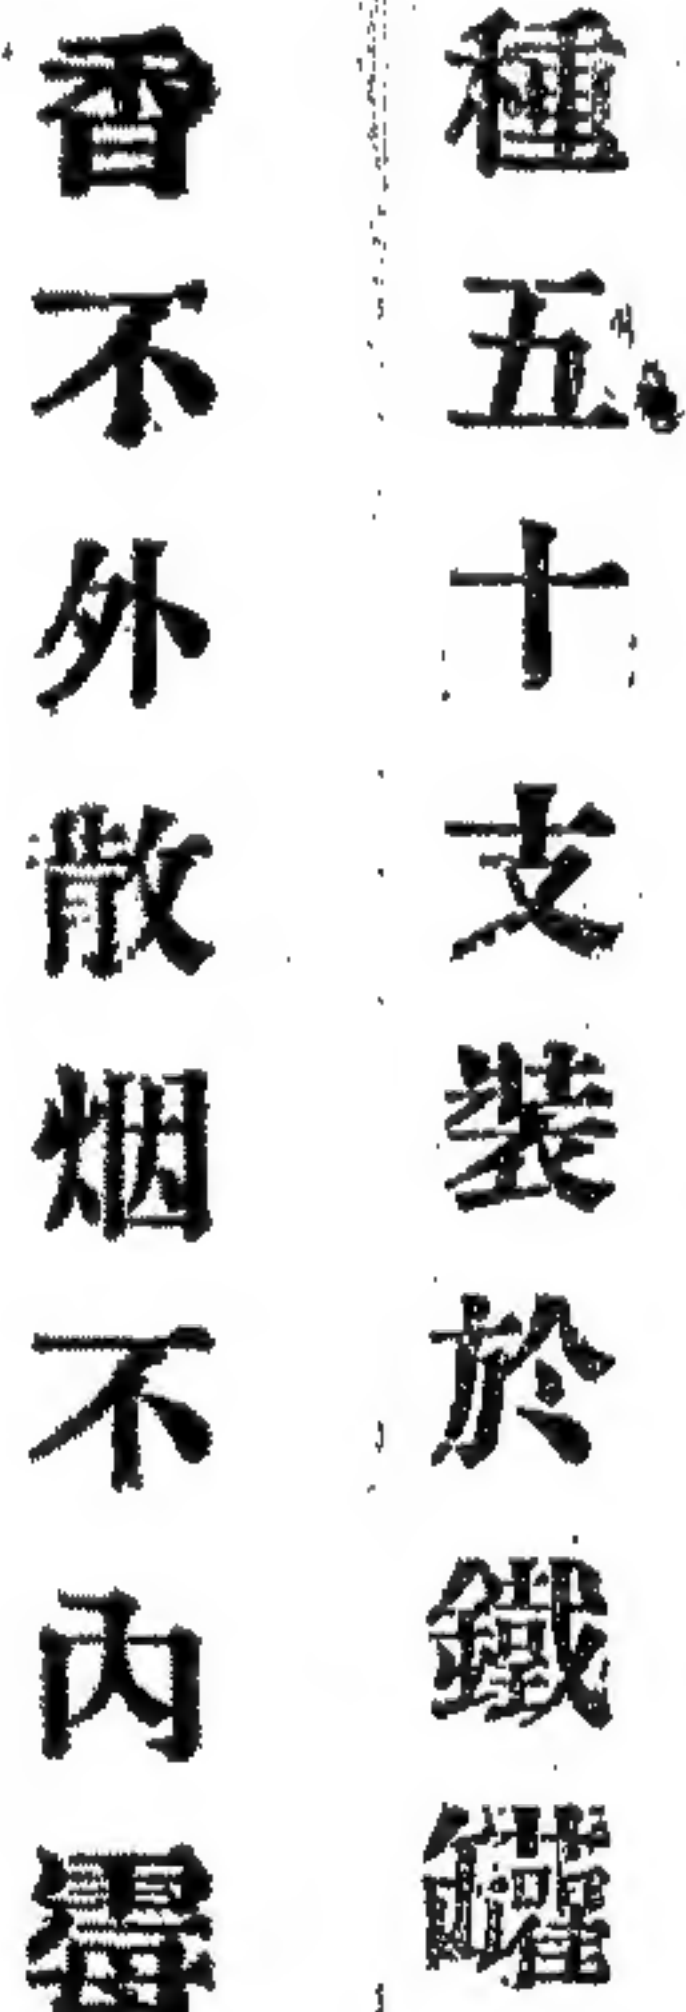 種五十支裝於鐵罐
香不外散烟不內霉